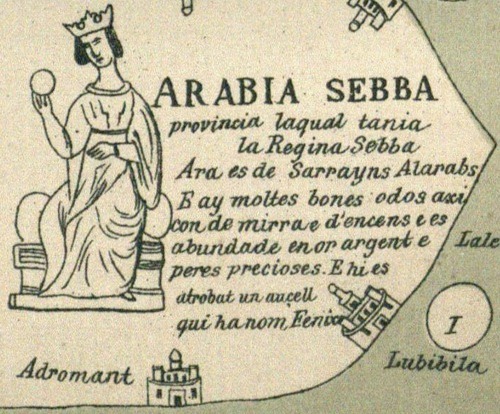 ARABIA SEBBA
provincia laqual tania
la Regina Sebba
Ara es de Sarrayns Alarabs
E ay moltes bones odos axi
con de mirra e d'encens e es
abundade en or argent e
peres precioses. E hi es
atrobat un aucell
qui ha nom Fenix
Lale
I
Lubibila
Adromant